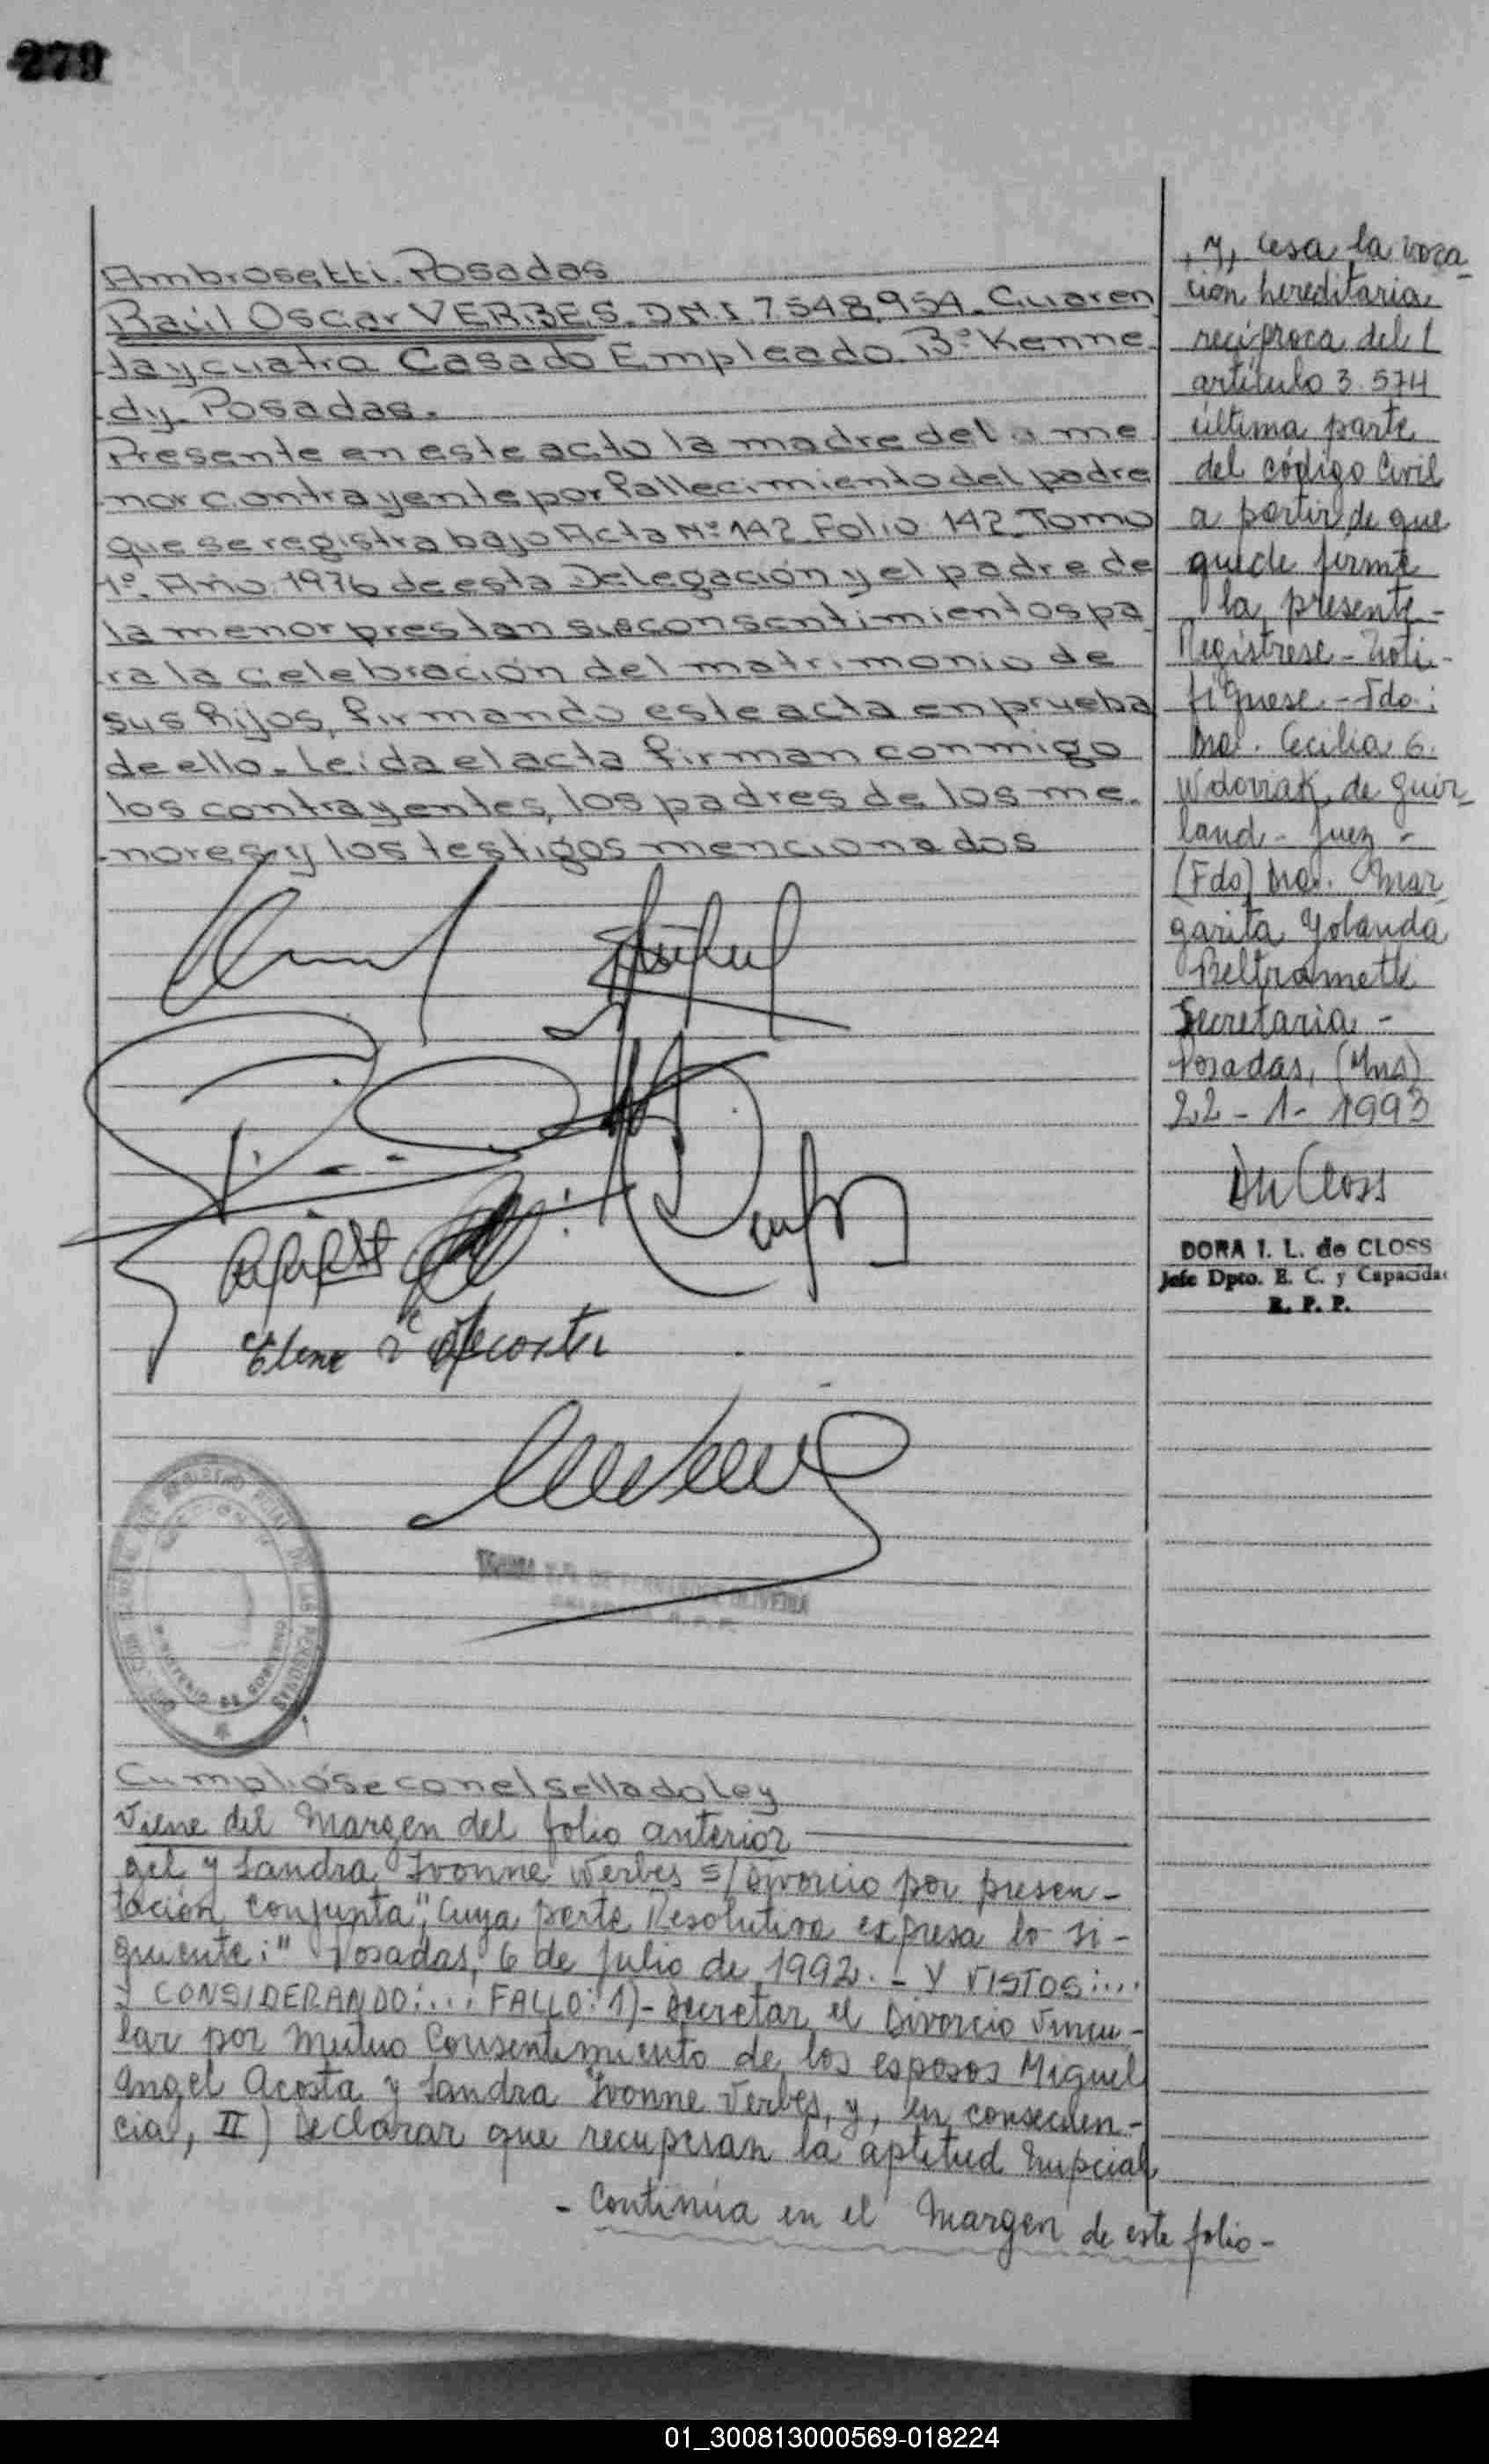 279
Ambrosetti. Posadas
Raúl Oscar VERBES. D.N.I. 7.548.954. Cuaren
ta y cuatro Casado Empleado. Bº Kenne
dy. Posadas.
Presente en este acto la madre del a me
nor contrayente por fallecimiento del padre
que se registra bajo Acta Nº 142 Folio 142 Tomo
1º. Año 1976 de esta Delegación y el padre de
la menor prestan sus consentimientos pa
ra la celebración del matrimonio de
sus hijos, firmando este acta en prueba
de ello. Leída el acta firman conmigo
los contrayentes, los padres de los me.
nores y los testigos mencionados
Elena
DE FERNANDEZ OLIVEIRA
Cumplióse con el sellado Ley
Viene del Margen del folio anterior
gel y Sandra Ivonne Verbes s/Divorcio por presen-
tación Conjunta", Cuya parte Resolutiva expresa lo si-
guiente:" Posadas, 6 de julio de 1992. - Y VISTOS:...
Y CONSIDERANDO:... FALLO: 1)- Decretar el Divorcio Vincu-
lar por Mutuo Consentimiento de los esposos Miguel
Angel Acosta y Sandra Ivonne Verbes, y, en consecuen-
cia, II) Declarar que recuperan la aptitud Nupcial
- Continúa en el Margen de este folio -
, y, cesa la voca-
ción hereditaria
recíproca del
artículo 3.574
última parte
del código Civil
a partir de que
quede firme
la presente -
Regístrese - Noti-
fíquese. - Fdo:
Dra. Cecilia G.
Wdoviak de Guir-
land - Juez -
(Fdo) Dra. Mar-
garita Yolanda
Beltrametti
Secretaria -
Posadas, (Mns)
22 - 1 - 1993
DORA I. L. de CLOSS
Jefe Dpto. E. C. y Capacidad
R. P. P.
01_300813000569-018224